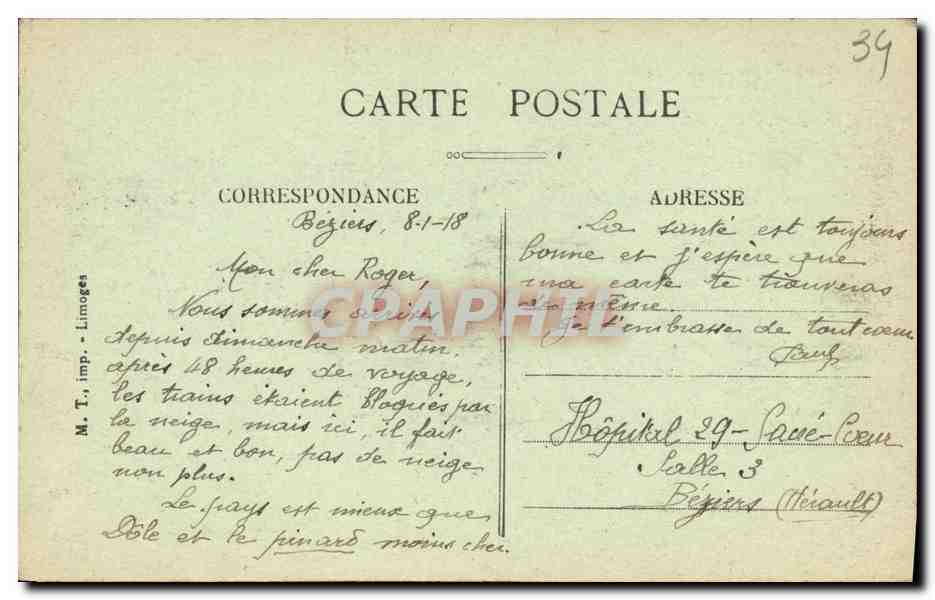 39
CARTE POSTALE
CORRESPONDANCE
Béziers, 8-1-18
Mon cher Roger,
Nous sommes arrivés
depuis dimanche matin.
après 48 heures de voyage,
les trains étaient bloqués par
la neige, mais ici, il fait
beau et bon, pas de neige
non plus.
Le pays est mieux que
Dôle et le pinard moins cher.
ADRESSE
La santé est toujours
bonne et j'espère que
ma carte te trouveras
de même.
Je t'embrasse de tout cœur
Paul
Hôpital 29 - Sacré-Cœur
Salle 3
Béziers (Hérault)
M. T., imp. - Limoges
CPAPHIL